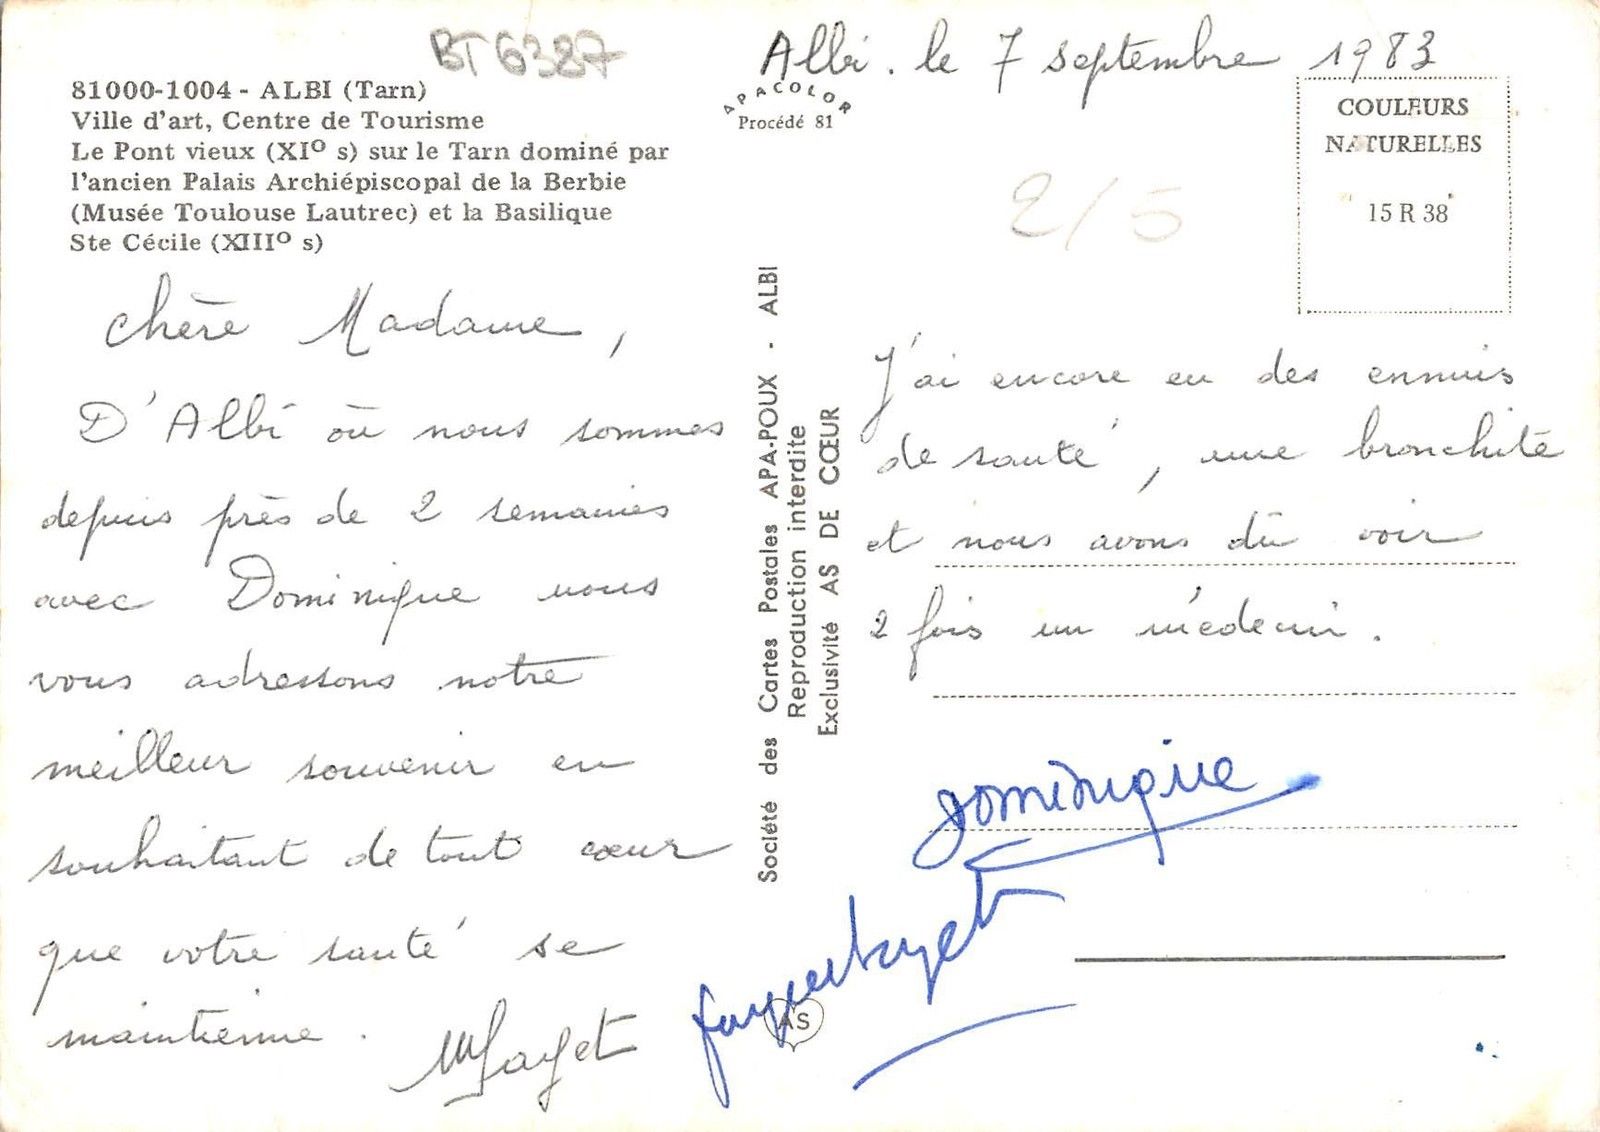 BT 6387
81000-1004 - ALBI (Tarn)
Ville d'art, Centre de Tourisme
Le Pont vieux (XIº s) sur le Tarn dominé par
l'ancien Palais Archiépiscopal de la Berbie
(Musée Toulouse Lautrec) et la Basilique
Ste Cécile (XIIIº s)
Chère Madame,
D'Albi où nous sommes
depuis près de 2 semaines
avec Dominique nous
vous adressons notre
meilleur souvenir en
souhaitant de tout cœur
que votre santé se
maintienne.
MFayet
Société des Cartes Postales APA-POUX - ALBI
Reproduction interdite
Exclusivité AS DE CŒUR
Albi. le 7 septembre 1983
APACOLOR
Procédé 81
COULEURS
NATURELLES
15 R 38
2/5
J'ai encore eu des ennuis
de santé, une bronchite
et nous avons dû voir
2 fois un médecin.
Dominique
Fayet
AS